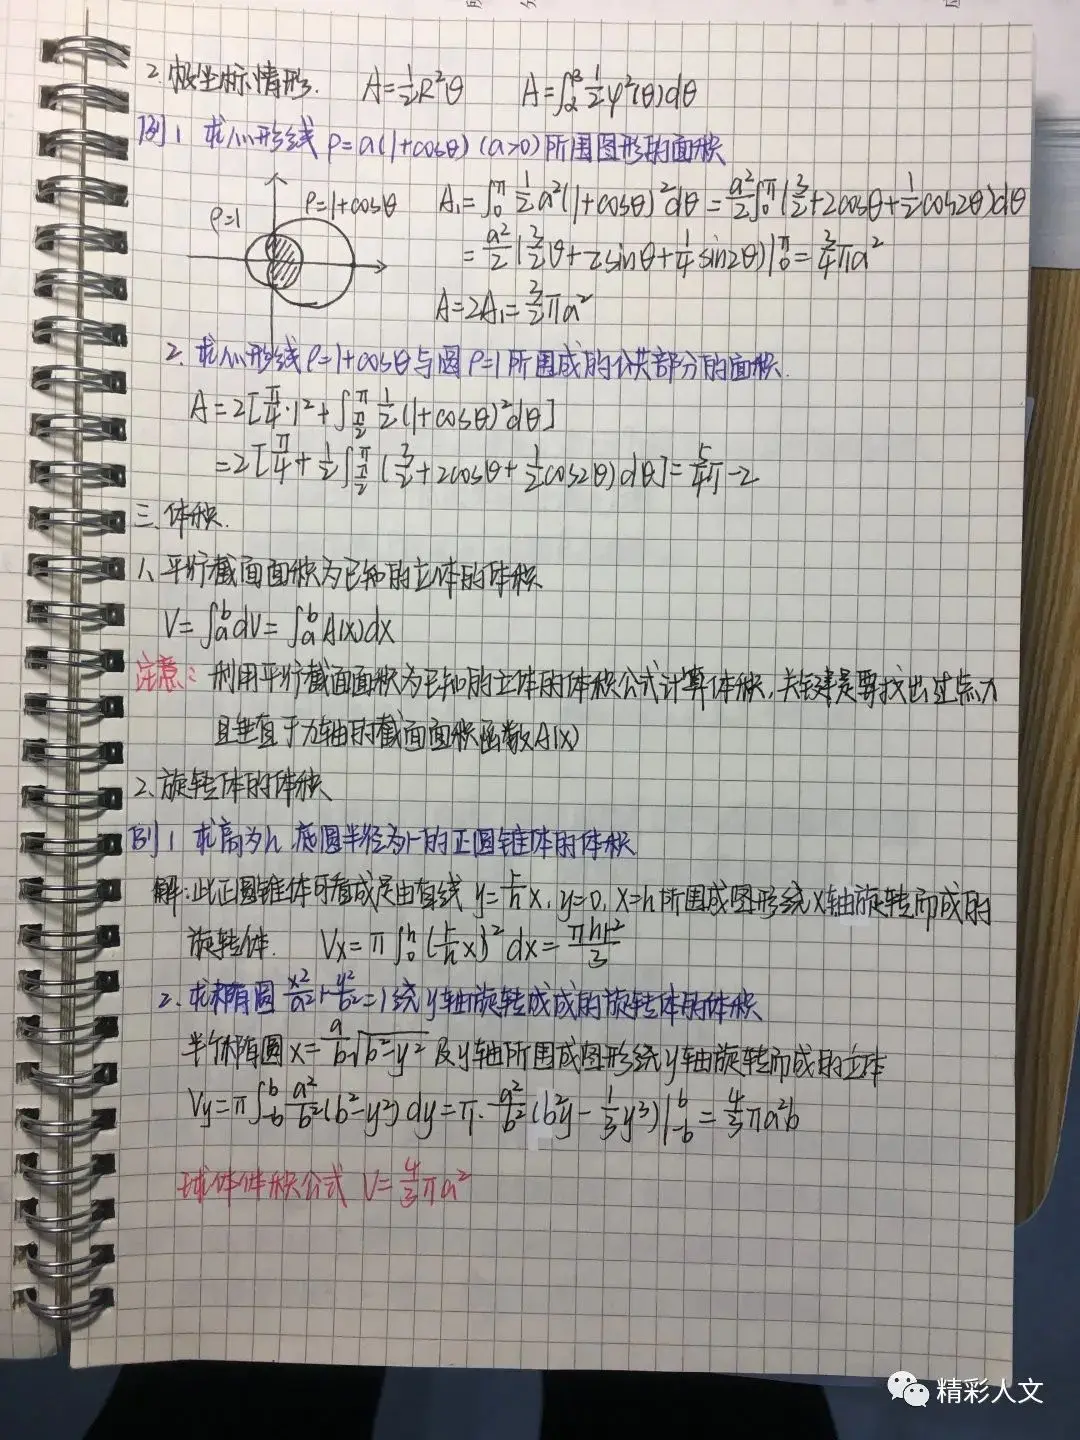 2.极坐标情形. A=½R²θ A=∫_α^β ½φ²(θ)dθ
例1 求心形线 ρ=a(1+cosθ) (a>0)所围图形的面积
ρ=1 ρ=1+cosθ A₁=∫₀^π ½a²(1+cosθ)²dθ=a²/2∫₀^π(3/2+2cosθ+½cos2θ)dθ
=a²/2(3/2θ+2sinθ+¼sin2θ)|₀^π=¾πa²
A=2A₁=3/2πa²
2.求心形线ρ=1+cosθ与圆ρ=1所围成的公共部分的面积.
A=2[π/4·1²+∫_{π/2}^π ½(1+cosθ)²dθ]
=2[π/4+½∫_{π/2}^π(3/2+2cosθ+½cos2θ)dθ]=5/4π-2
三.体积.
1、平行截面面积为已知的立体的体积
V=∫ₐᵇdV=∫ₐᵇA(x)dx
注意: 利用平行截面面积为已知的立体的体积公式计算体积,关键是要找出过点x
且垂直于x轴的截面面积函数A(x)
2.旋转体的体积
例1 求高为h 底圆半径为r的正圆锥体的体积
解:此正圆锥体可看成是由直线 y=r/h x, y=0, x=h所围成图形绕x轴旋转而成的
旋转体. Vx=π∫₀ʰ(r/h x)²dx=πhr²/3
2.求椭圆 x²/a²+y²/b²=1绕y轴旋转成成的旋转体的体积
半个椭圆x=a/b√(b²-y²) 及y轴所围成图形绕y轴旋转而成的立体
Vy=π∫₋ᵦᵇ a²/b²(b²-y²)dy=π·a²/b²(b²y-⅓y³)|₋ᵦᵇ=4/3πa²b
球体体积公式 V=4/3πa²
精彩人文